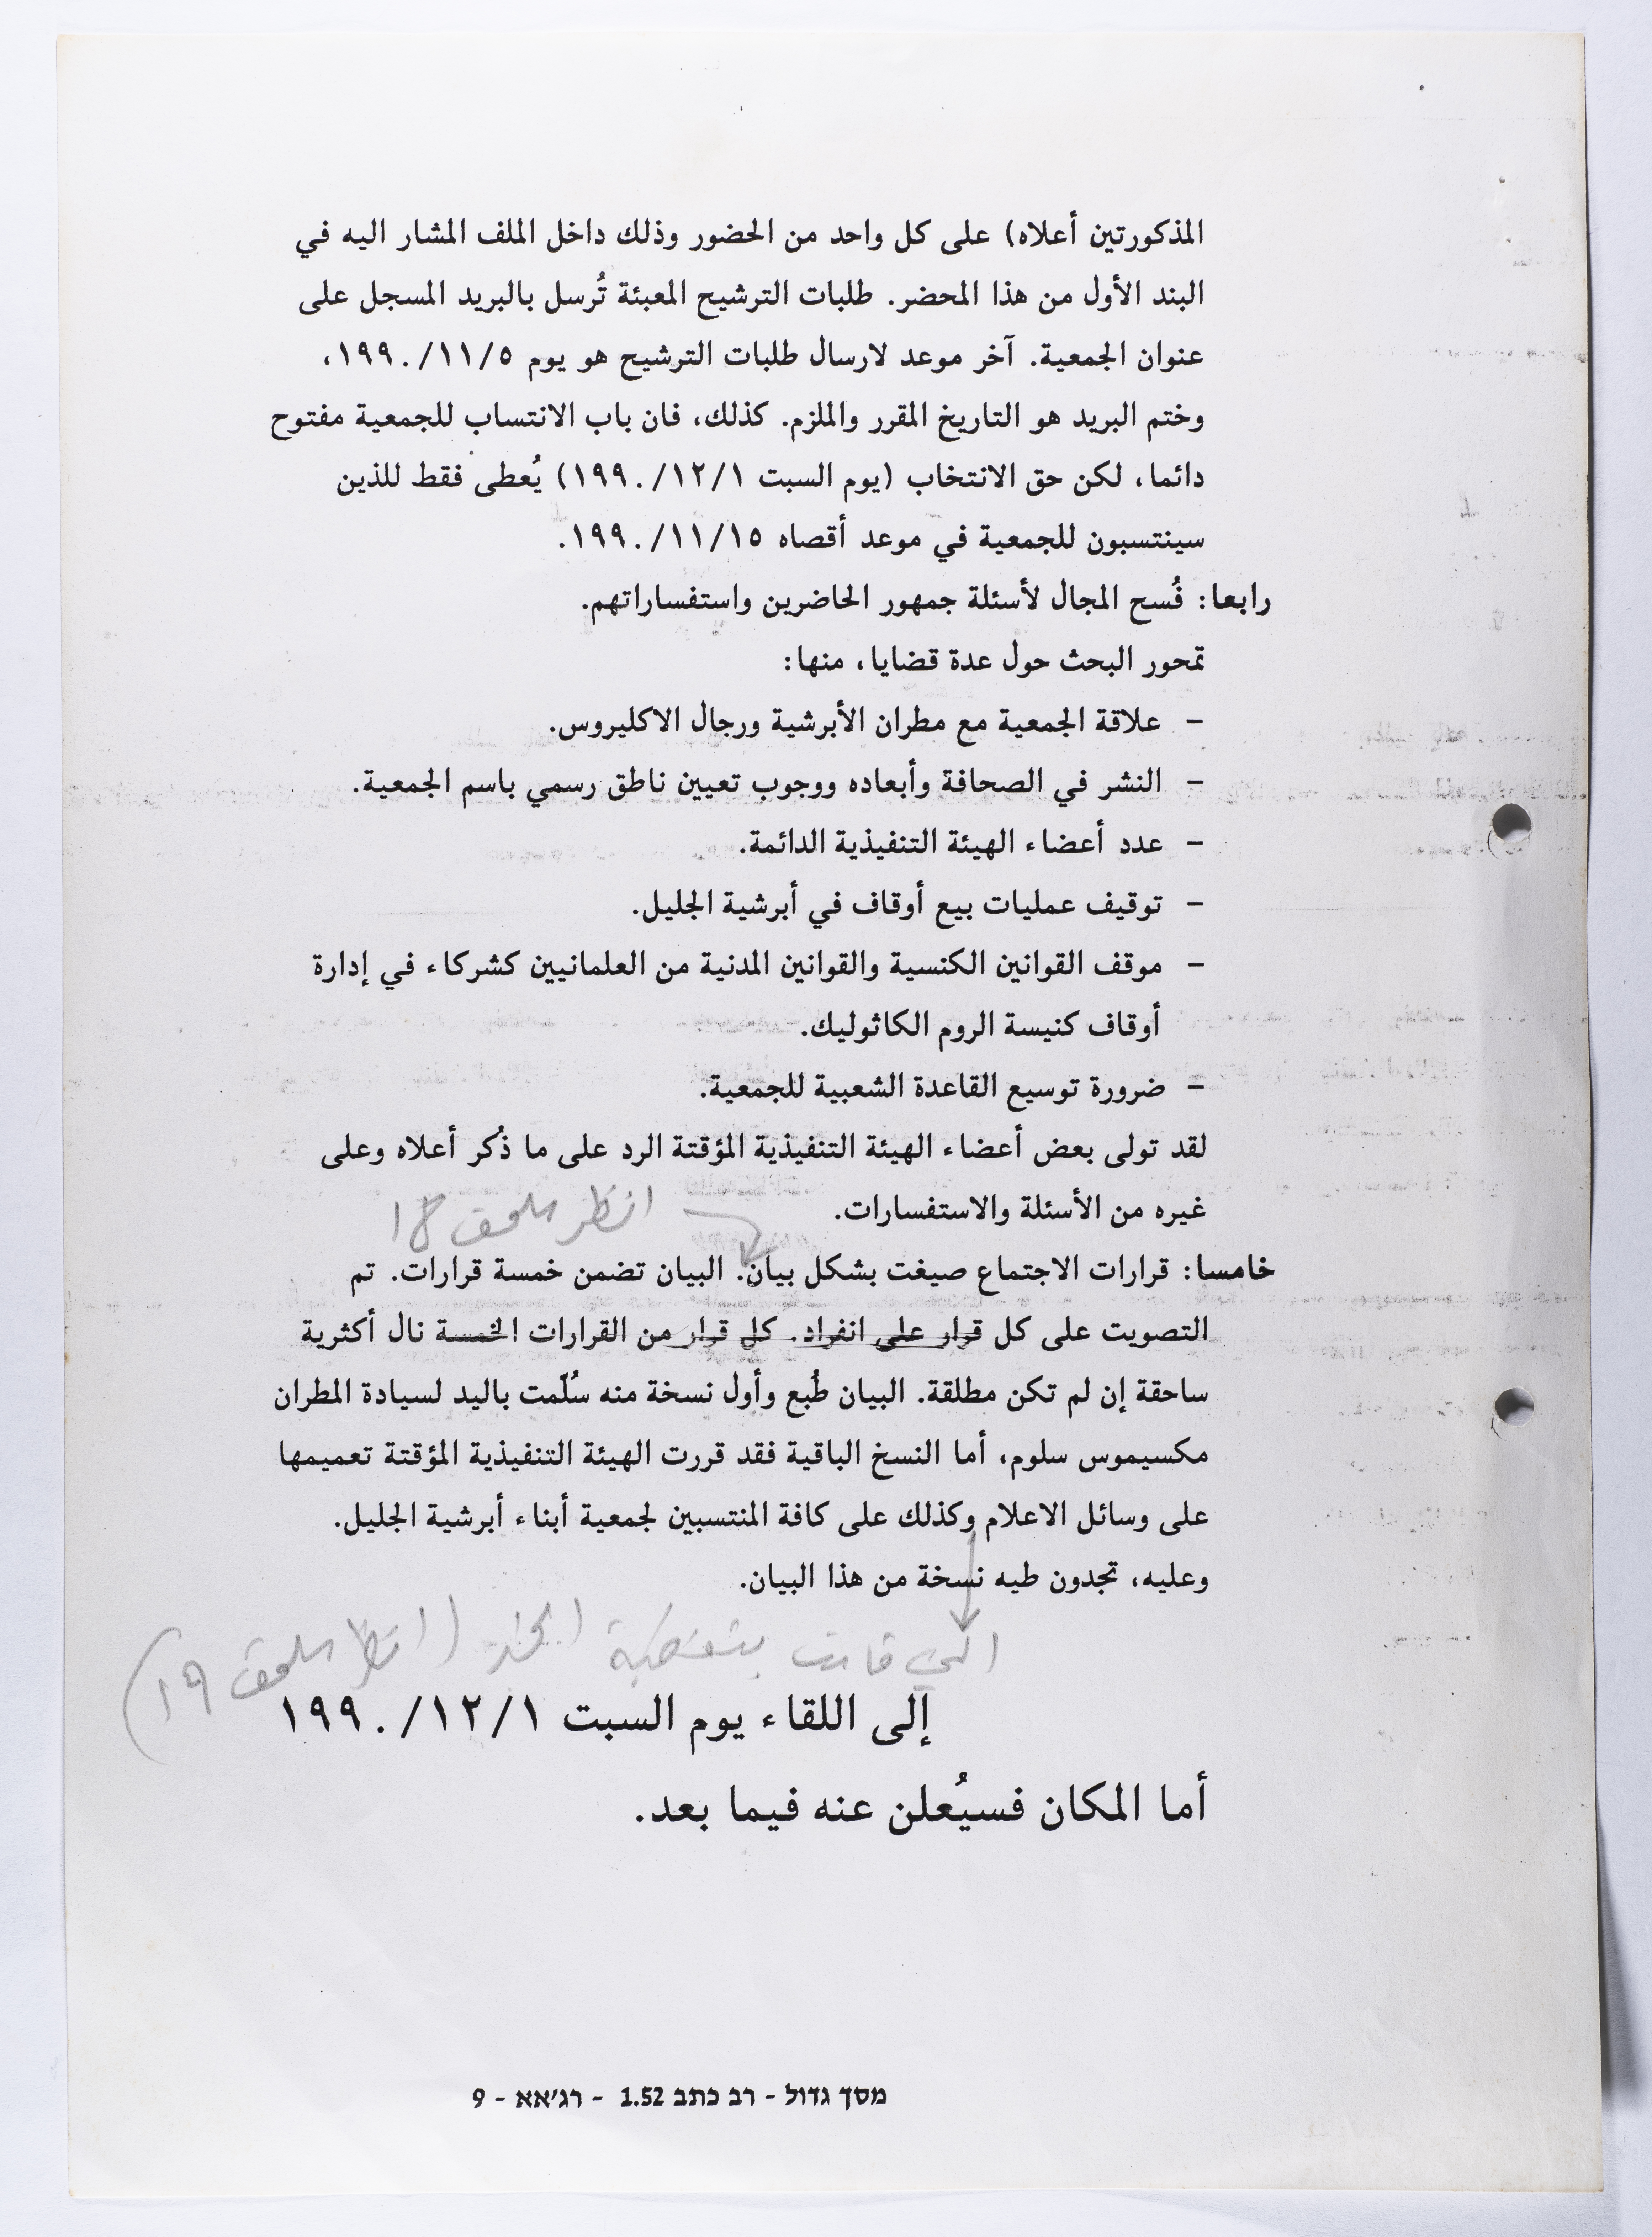 المذكورتين أعلاه) على كل واحد من الحضور وذلك داخل الملف المشار اليه في
البند الأول من هذا المحضر. طلبات الترشيح المعبئة تُرسل بالبريد المسجل على
عنوان الجمعية. آخر موعد لارسال طلبات الترشيح هو يوم ١٩٩٠/١١/٥،
وختم البريد هو التاريخ المقرر والملزم. كذلك، فان باب الانتساب للجمعية مفتوح
دائما، لكن حق الانتخاب (يوم السبت ١٩٩٠/١٢/١) يُعطى فقط للذين
سينتسبون للجمعية في موعد أقصاه ١٩٩٠/١١/١٥.
رابعا: فُسح المجال لأسئلة جمهور الحاضرين واستفساراتهم.
تمحور البحث حول عدة قضايا، منها:
– علاقة الجمعية مع مطران الأبرشية ورجال الاكليروس.
– النشر في الصحافة وأبعاده ووجوب تعيين ناطق رسمي باسم الجمعية.
– عدد أعضاء الهيئة التنفيذية الدائمة.
– توقيف عمليات بيع أوقاف في أبرشية الجليل.
– موقف القوانين الكنسية والقوانين المدنية من العلمانيين كشركاء في إدارة
أوقاف كنيسة الروم الكاثوليك.
– ضرورة توسيع القاعدة الشعبية للجمعية.
لقد تولى بعض أعضاء الهيئة التنفيذية المؤقتة الرد على ما ذُكر أعلاه وعلى
غيره من الأسئلة والاستفسارات.
انظر ملحق 18
خامسا: قرارات الاجتماع صيغت بشكل بيان. البيان تضمن خمسة قرارات. تم
التصويت على كل قرار على انفراد. كل قرار من القرارات الخمسة نال أكثرية
ساحقة إن لم تكن مطلقة. البيان طُبع وأول نسخة منه سُلّمت باليد لسيادة المطران
مكسيموس سلوم، أما النسخ الباقية فقد قررت الهيئة التنفيذية المؤقتة تعميمها
على وسائل الاعلام وكذلك على كافة المنتسبين لجمعية أبناء أبرشية الجليل.
وعليه، تجدون طيه نسخة من هذا البيان.
التي قامت بتغطية الخبر (انظر ملحق 19)
إلى اللقاء يوم السبت ١٩٩٠/١٢/١
أما المكان فسيُعلن عنه فيما بعد.
מסך גדול - רב כתב 1.52 - רג'אא - 9